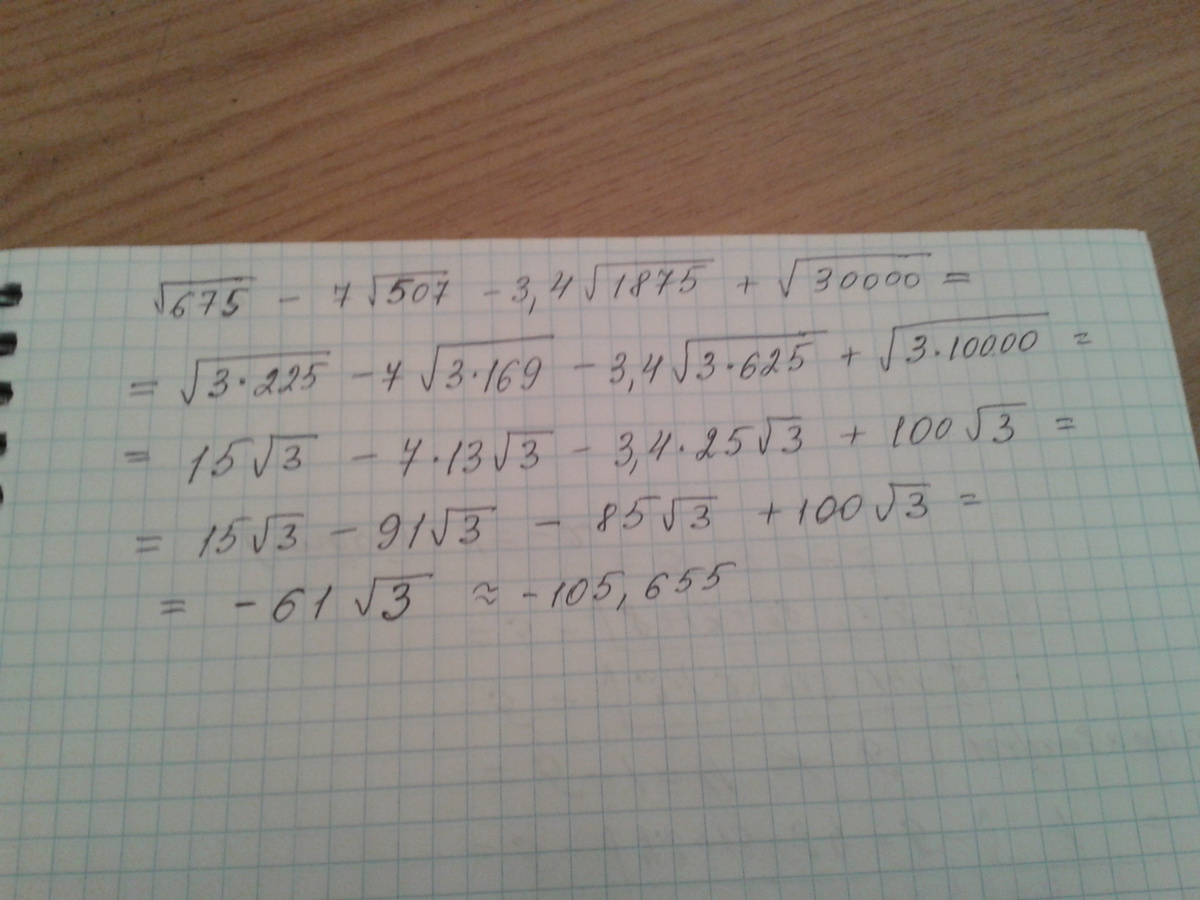 √675 - 7√507 - 3,4√1875 + √30000 =
= √3·225 - 7√3·169 - 3,4√3·625 + √3·10000 =
= 15√3 - 7·13√3 - 3,4·25√3 + 100√3 =
= 15√3 - 91√3 - 85√3 + 100√3 =
= -61√3 ≈ -105,655